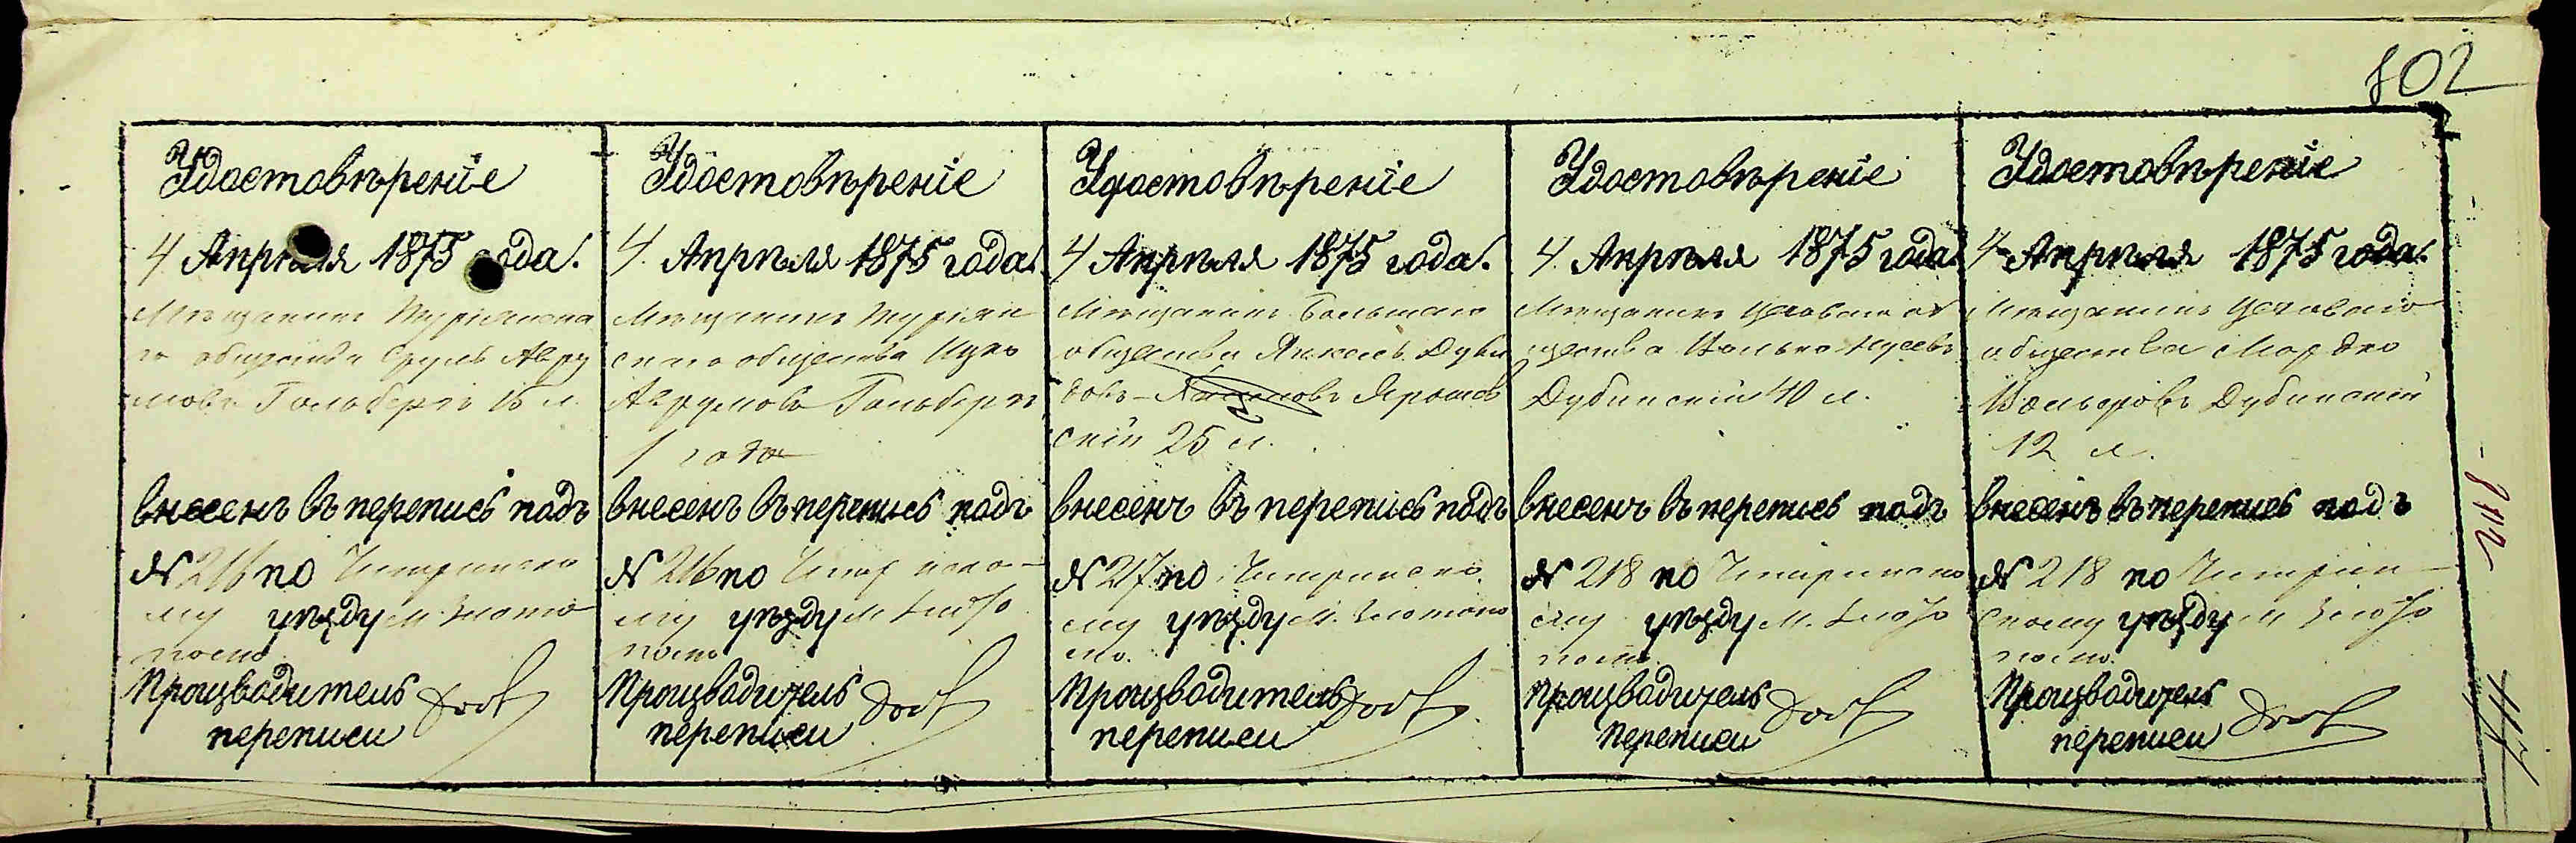 802
Удостовѣреніе
4 Апрѣля 1875 года.
Мѣщанинъ Туріянска
го общества Сруль Авру
мовъ Гольдбергъ 16 л.
внесенъ въ перепись подъ
№ 216 по Чигиринско
му уѣзду м. Злато
полю
Производитель
переписи
Удостовѣреніе
4 Апрѣля 1875 года.
Мѣщанинъ Туріян
скаго общества Ицко
Аврумовъ Гольдбергъ
1 года
внесенъ въ перепись подъ
№ 216 по
му уѣзду м. Злато
полю
Производитель
переписи
Удостовѣреніе
4 Апрѣля 1875 года.
Мѣщанинъ
общества Янкель Дуви
довъ Ярошев
скій 25 л.
внесенъ въ перепись подъ
№ 217 по Чигиринско
му уѣзду м. Златопо
лю.
Производитель
переписи
Удостовѣреніе
4 Апрѣля 1875 года
Мѣщанинъ об
щества Волько
Дубинскій 40 л.
внесенъ въ перепись подъ
№ 218 по Чигиринско
му уѣзду м. Злато
полю
Производитель
переписи
Удостовѣреніе
4 Апрѣля 1875 года.
Мѣщанинъ
общества Мордко
Вольковъ Дубинскій
12 л.
внесенъ въ перепись подъ
№ 218 по Чигирин
скому уѣзду м Злато
полю.
Производитель
переписи